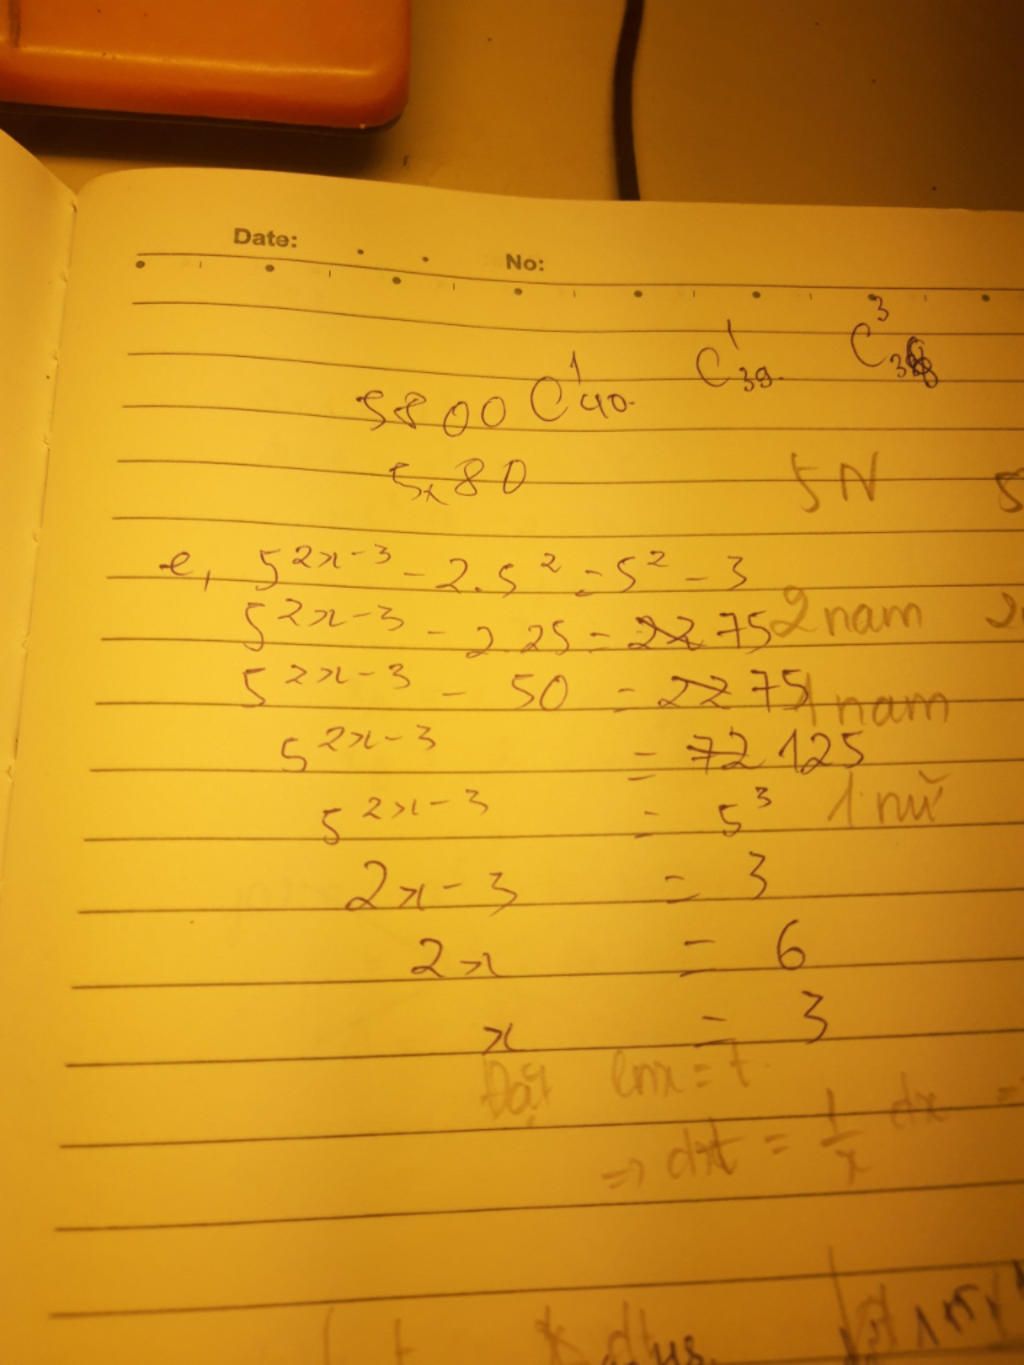 Date:
No:
5800 C¹₄₀. C¹₃₉. C³₃₈
5x80
5N 5
e, 5^{2x-3} - 2.5² = 5² - 3
5^{2x-3} - 2.25 = 22 75 2 nam
5^{2x-3} - 50 = 22 75 1 nam
5^{2x-3} = 72 125
5^{2x-3} = 5³ 1 nữ
2x - 3 = 3
2x = 6
x = 3
Đặt lnx = t.
=> dt = 1/x dx =